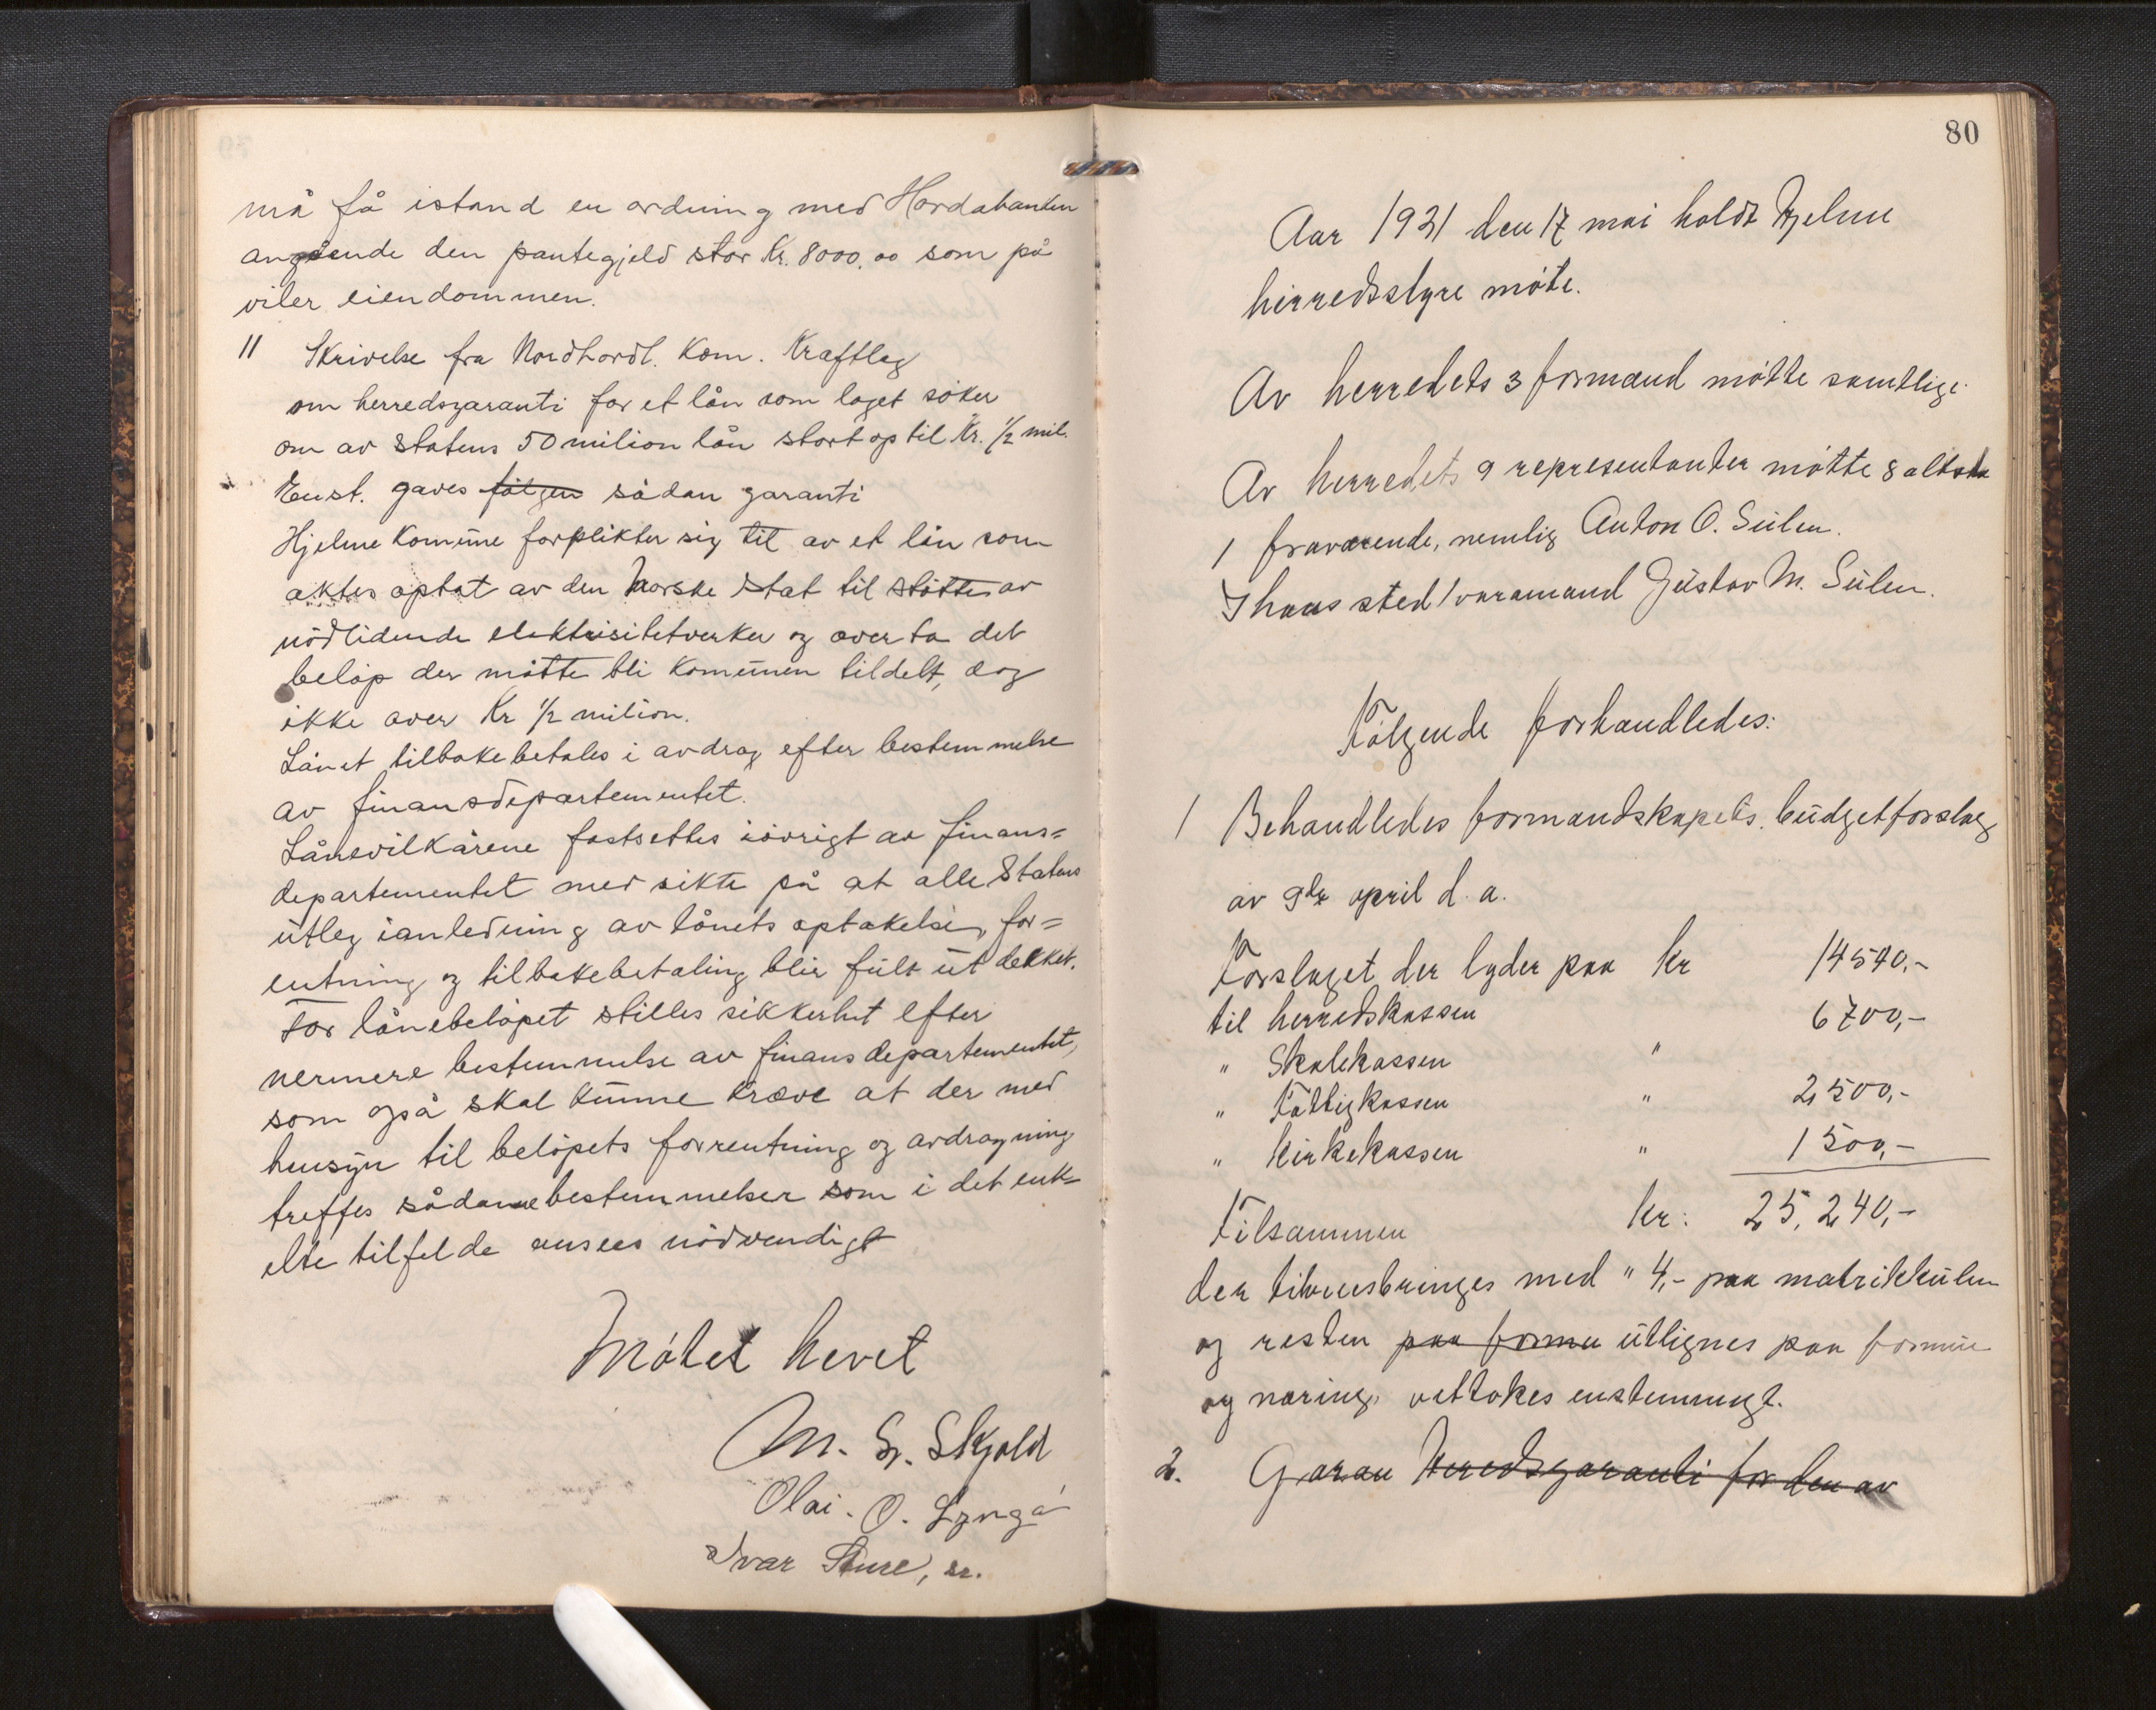 må få istand en ordning med Hordabanken
angående den pantegjeld stor Kr. 8000,00 som på
viler eiendommen.
11 Skrivelse fra Nordhordl. Kom. Kraftlag
om herredsgaranti for et lån som laget söker
om av statens 50 milion lån stort op til Kr. 1/2 mil.
Enst. gaves følgen sådan garanti
Hjelme Komune forplikter sig til av et lån som
aktes optat av den Norske stat til støtte av
nödlidende elektrisitetverker og overta det
beløp der måtte bli Komunen tildelt, dog
ikke over Kr 1/2 milion.
Lånet tilbakebetales i avdrag efter bestemmelse
av finansdepartementet.
Lånevilkårene fastsettes iövrigt av finans=
departementet med sikte på at alle Statens
utleg i anledning av lånets optakelse, for=
rentning og tilbakebetaling blir fult ut dekket.
For lånebelöpet stilles sikkerhet efter
nermere bestemmelse av finansdepartementet,
som også skal kunne kræve at der med
hensyn til belöpets forrentning og avdragning
treffes sådanne bestemmelser som i det enk=
elte tilfelde ansees nödvendigt
Mötet hevet
M. G. Skjold
Olai. O. Lyngå
Ivar Sture, sr.
80
Aar 1931 den 17 mai holdt Hjelme
herredsstyre möte.
Av herredets 3 formænd mötte samtlige.
Av herredets 9 representanter mötte 8 altsaa
1 fraværende, nemlig Anton O. Sülen.
I hans sted 1 varamand Güstav M. Sülen.
Fölgende forhandledes:
1 Behandledes formandskapets budgetforslag
av 9de april d. a.
Forslaget der lyder paa kr 14540,-
til herredskassen 6700,-
" Skolekassen "
" Fattigkassen " 2500,-
" Kirkekassen " 1500,-
Tilsammen kr: 25,240,-
der tilveiebringes med " 4,- paa matrikkülen
og resten paa formu utlignes paa formüe
og næring, vettokes enstemmigt.
2. Garan Heredsgaranti for den av